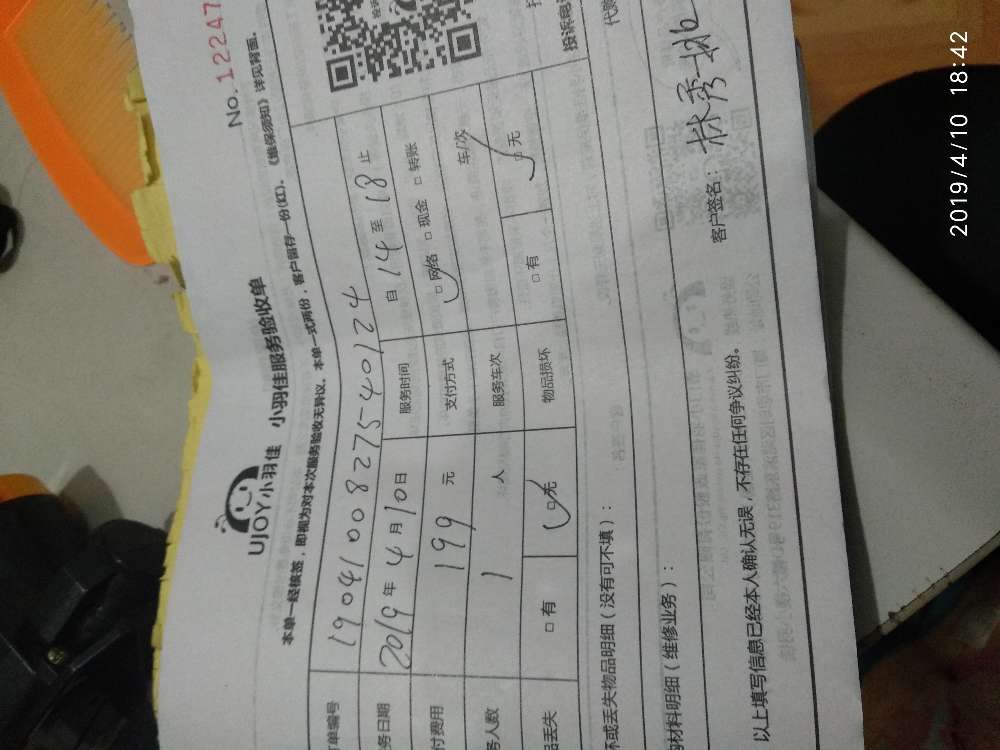 No.12247
UJOY小羽佳 小羽佳服务验收单
本单一经核签，即视为对本次服务验收无异议。本单一式两份，客户留存一份(红)。《维保须知》详见背面。
单编号 19041008275400124
务日期 2019年4月10日 服务时间 自14至18止
付费用 199元 支付方式 □网络 □现金 □转账
务人数 1人 服务车次 车/次
品丢失 □有 □无 物品损坏 □有 □无
坏或丢失物品明细（没有可不填）：
材料明细（维修业务）：
以上填写信息已经本人确认无误，不存在任何争议纠纷。
客户签名：林秀
投诉电
代贴
2019/4/10 18:42